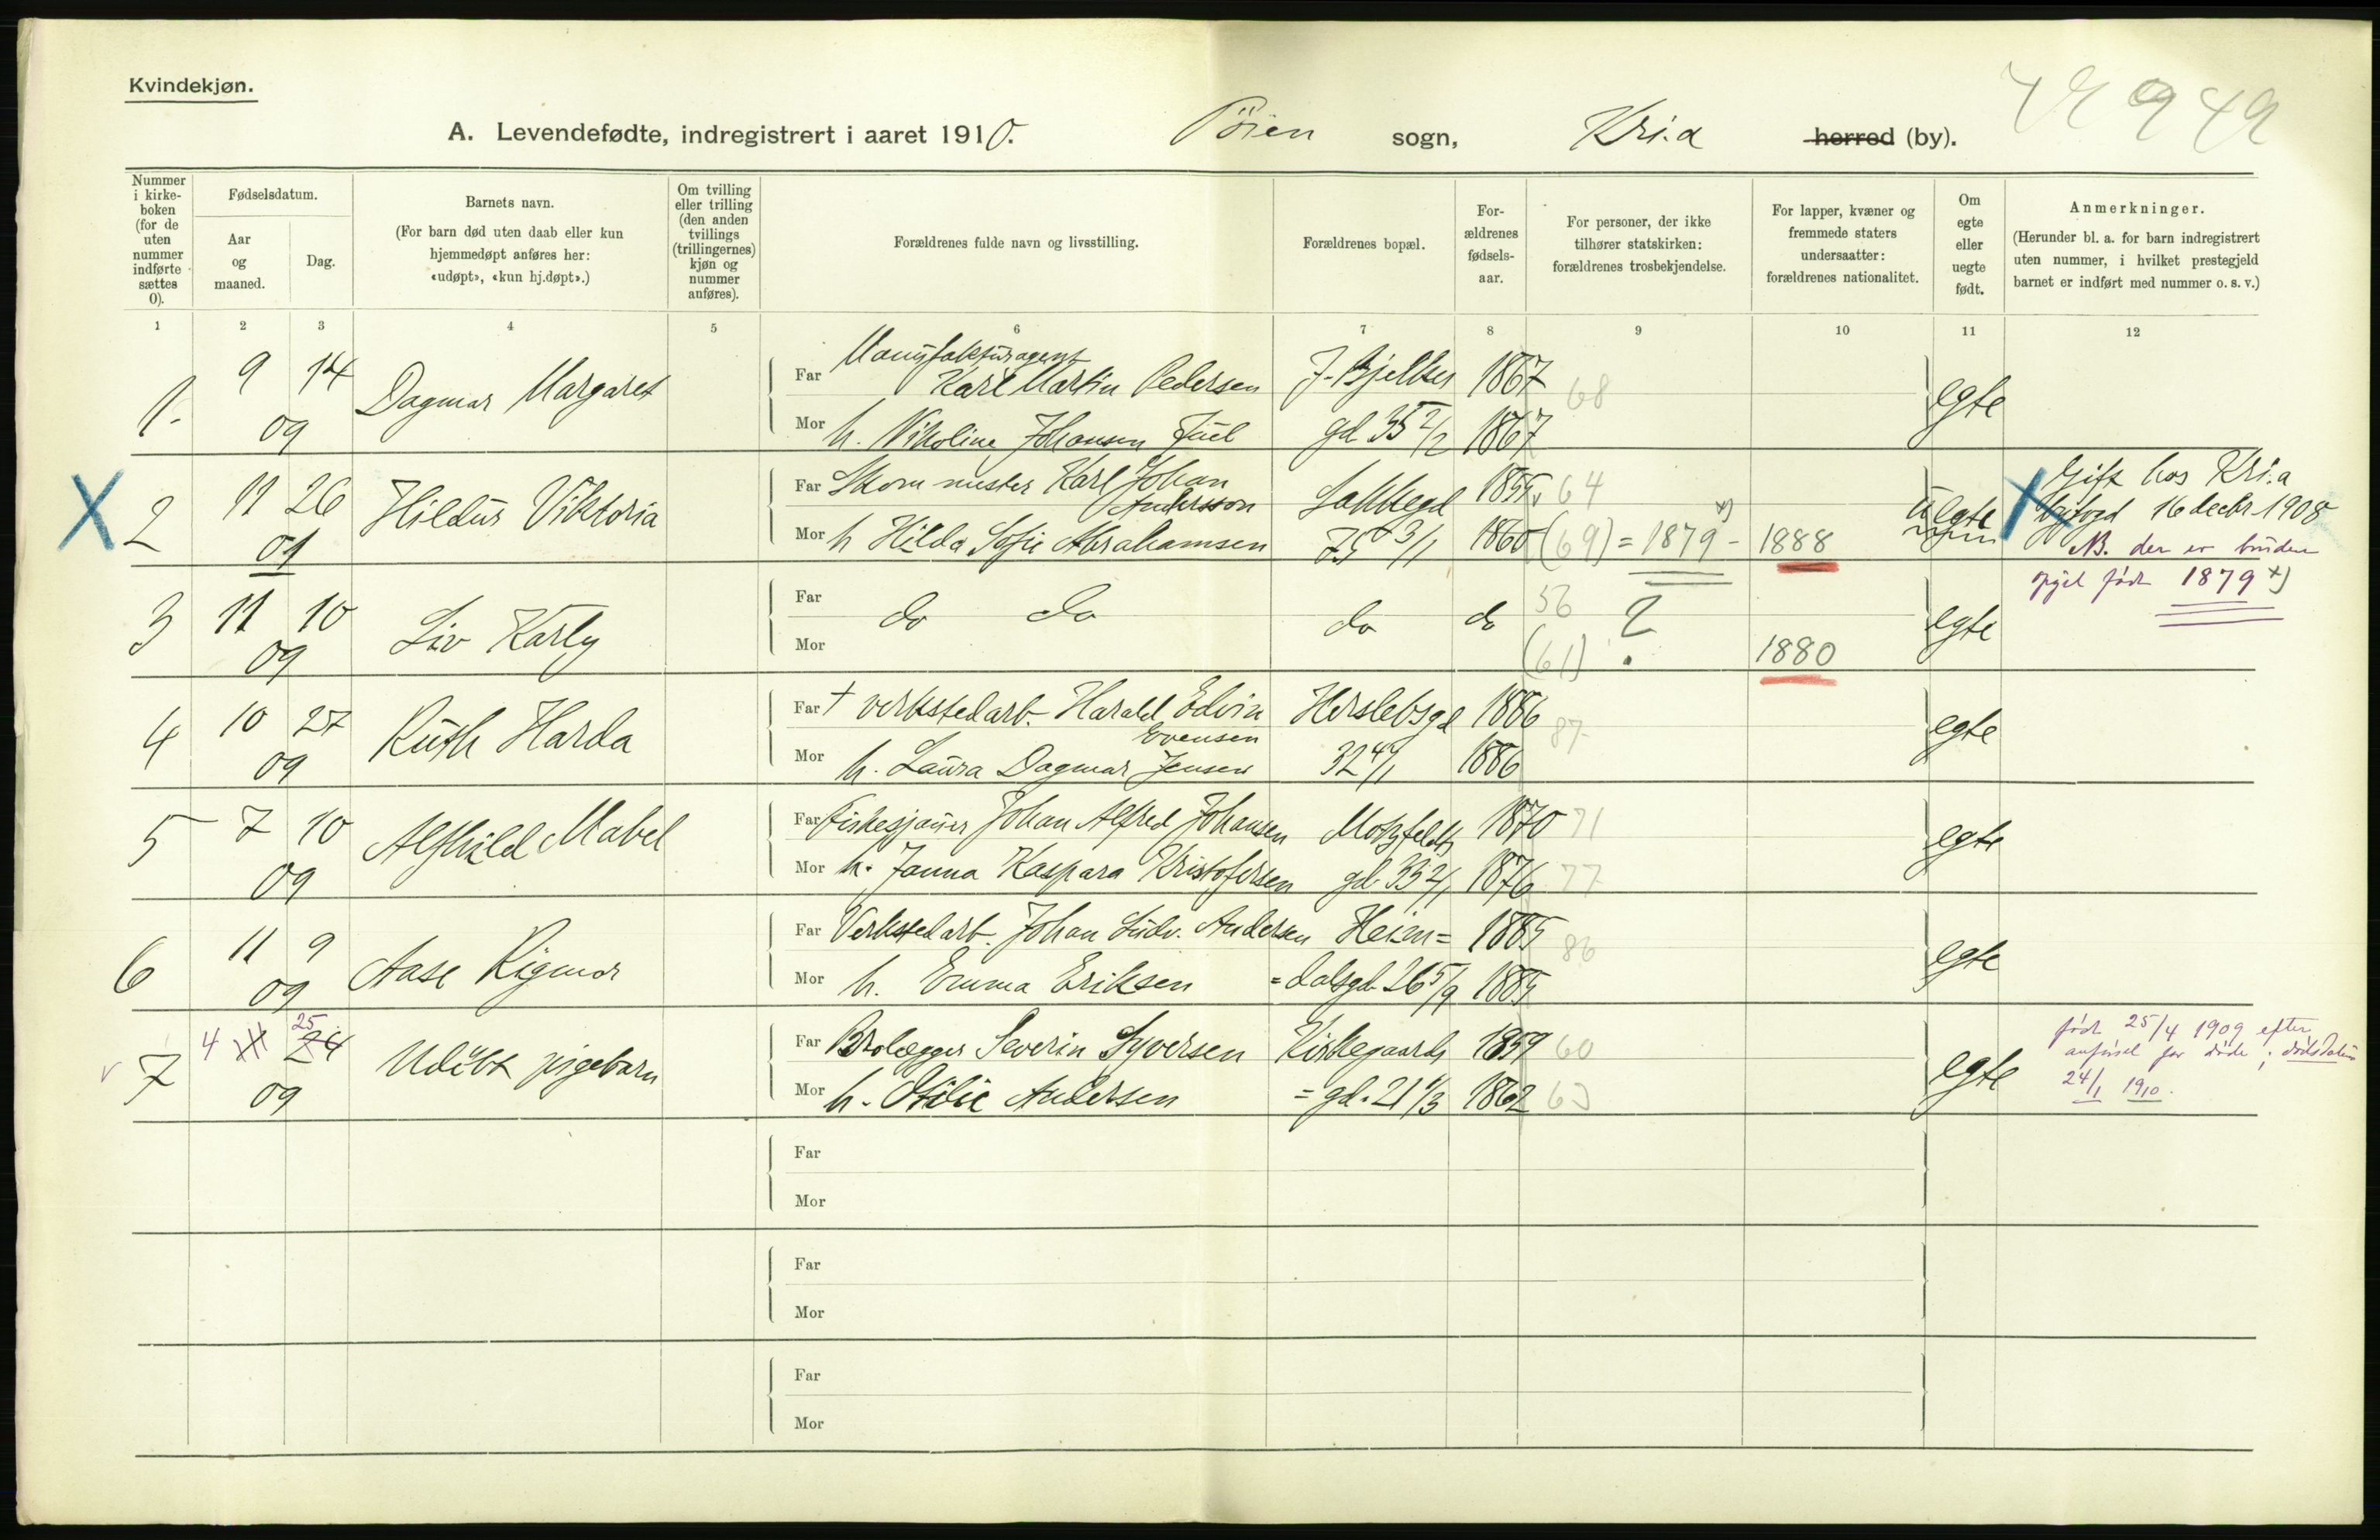 Kvindekjøn.
A. Levendefødte, indregistrert i aaret 1910. Töien sogn, Kri.a herred (by).
Nummer i kirke-boken (for de uten nummer indførte sættes 0).
Fødselsdatum.
Aar og maaned.
Dag.
Barnets navn.
(For barn død uten daab eller kun hjemmedøpt anføres her: «udøpt», «kun hj.døpt».)
Om tvilling eller trilling (den anden tvillings (trillingernes) kjøn og nummer anføres).
Forældrenes fulde navn og livsstilling.
Forældrenes bopæl.
For-ældrenes fødsels-aar.
For personer, der ikke tilhører statskirken: forældrenes trosbekjendelse.
For lapper, kvæner og fremmede staters undersaatter: forældrenes nationalitet.
Om egte eller uegte født.
Anmerkninger.
(Herunder bl. a. for barn indregistrert uten nummer, i hvilket prestegjeld barnet er indført med nummer o. s. v.)
1 2 3 4 5 6 7 8 9 10 11 12
1. 9 14 09 Dagmar Margaret
Far Manufakturagent Karl Martin Pedersen J. Bjelkes 1867 68 egte
Mor h. Nikoline Johansen Juel gd 35 2/2 1867
X 2 11 26 01 Hildur Viktoria
Far Skom mester Karl Johan Andersson Lakkegd 1855 64 Uegte
Mor h Hilda Sofie Abrahamsen 75 3/1 1860 (69) = 1879 - x) 1888
Gift hos Kri.a
Byfogd 16 decbr 1908
NB. der er bruden
opgit født 1879 x)
3 11 10 09 Liv Karly
Far do do do do 56 ? egte
Mor (61) 1880
4 10 27 09 Ruth Harda
Far † verkstedarb. Harald Edvin Evensen Herslebsgd 1886 87 egte
Mor h. Laura Dagmar Jensen 32 4/1 1886
5 7 10 09 Alfhild Mabel
Far Fiskesjauer Johan Alfred Johansen Motzfeldts 1870 71 egte
Mor h. Janna Kaspara Kristofersen gd. 33 2/1 1876 77
6 11 9 09 Aase Rigmor
Far Verkstedarb. Johan Ludv. Andersen Heien= 1885 86 egte
Mor h. Emma Eriksen =dalsgd. 26 5/9 1885
7 4 11 25 24 09 Udöbt pigebarn
Far Brolægger Severin Syversen Kirkegaards 1859 60 egte
Mor h. Otilie Andersen =gd. 21 4/3 1862 63
født 25/4 1909 efter
anførsel for døde; dødsdatum
24/1 1910.
Far
Mor
Far
Mor
Far
Mor